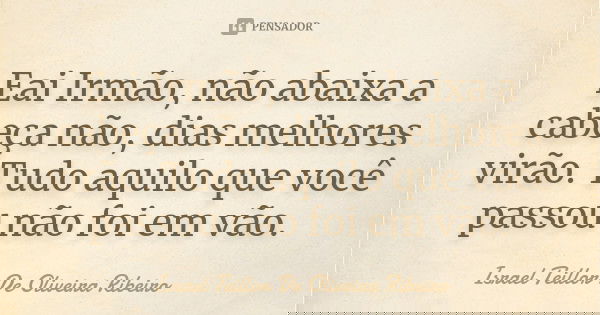 PENSADOR
Eai Irmão, não abaixa a
cabeça não, dias melhores
virão. Tudo aquilo que você
passou não foi em vão.
Israel Teillor De Oliveira Ribeiro